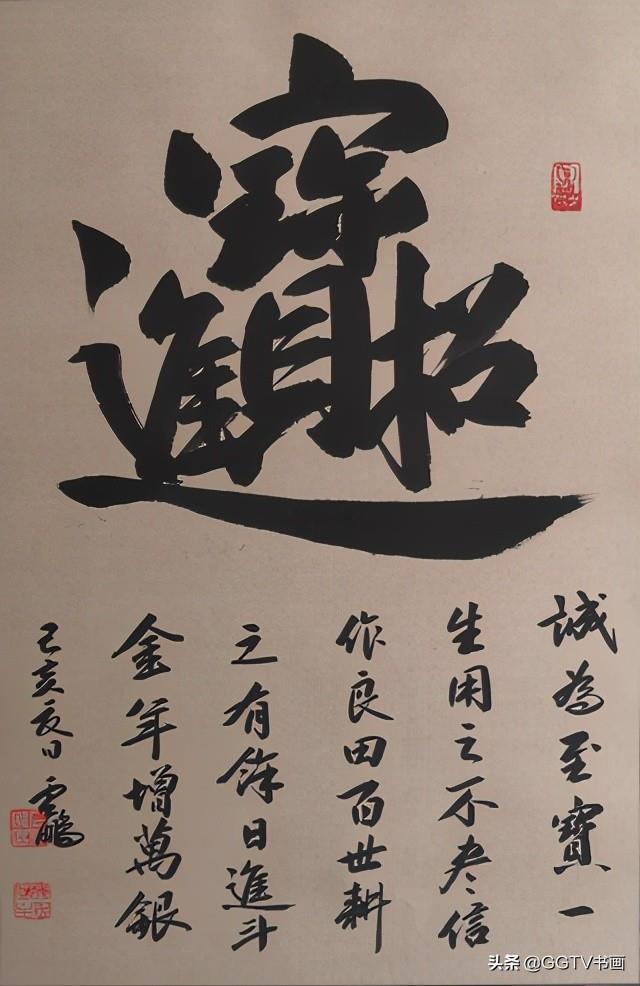 招財進寶
誠為至寶一
生用之不尽信
作良田百世耕
之有餘日進斗
金年增萬銀
己亥夏日 雲鵬
头条 @GGTV书画